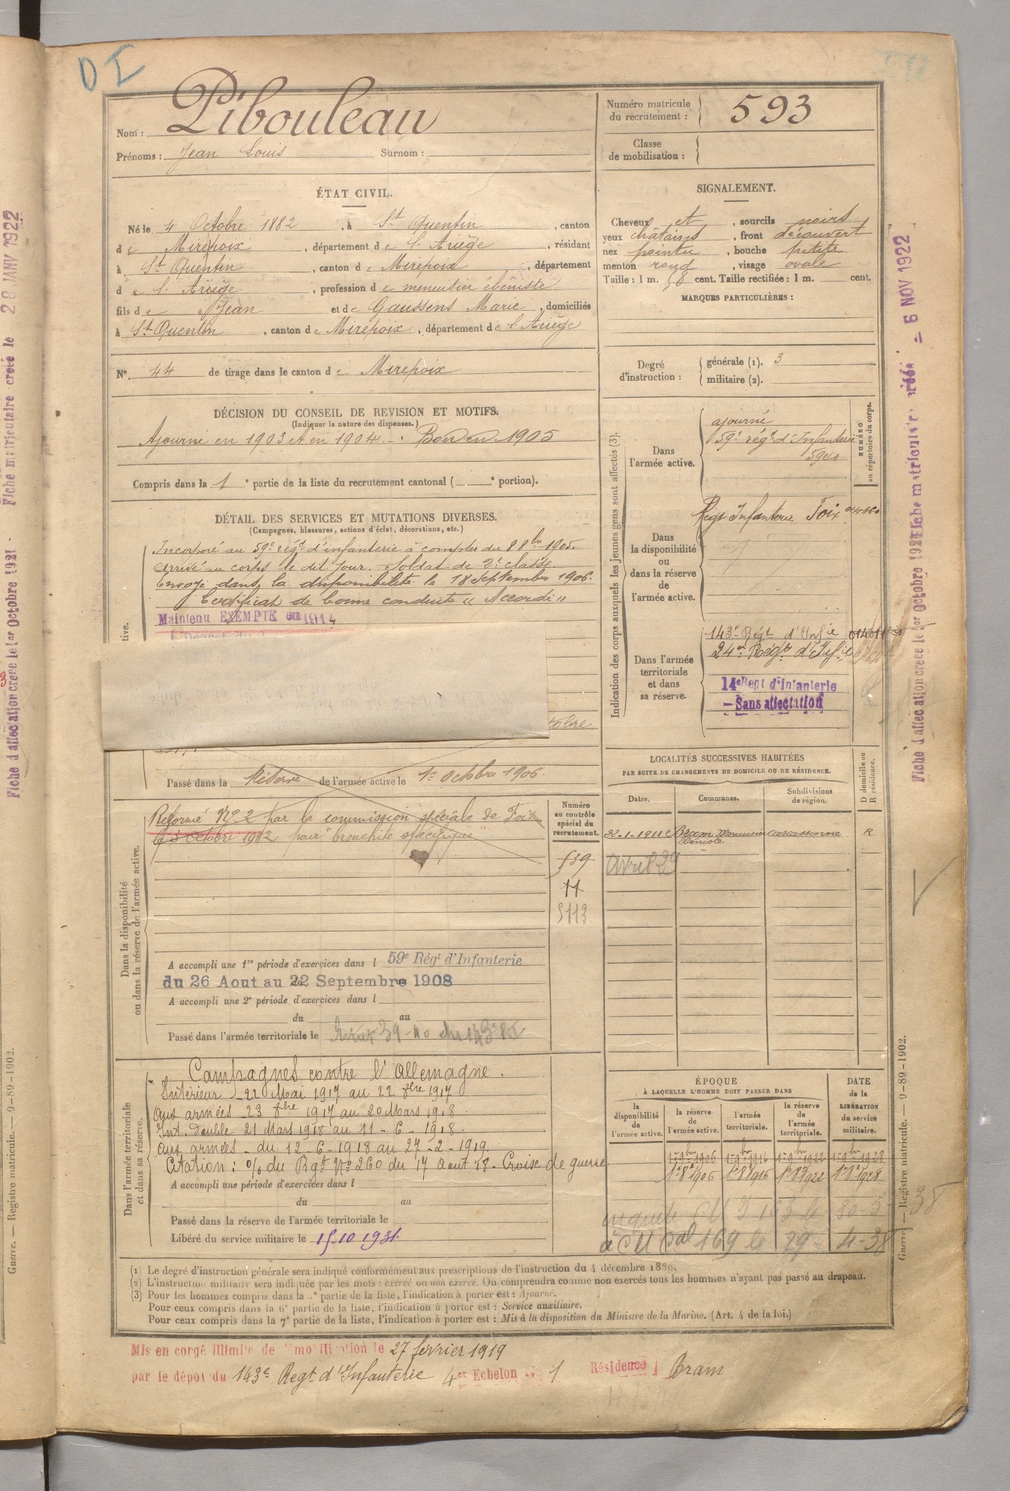 DI
Nom : Pibouleau
Prénoms : Jean Louis Surnom :
Numéro matricule du recrutement : 593
Classe de mobilisation :
ÉTAT CIVIL.
Né le 4 Octobre 1882, à St Quentin, canton
de Mirepoix, département de l'Ariège, résidant
à St Quentin, canton de Mirepoix, département
de l'Ariège, profession de menuisier ébéniste
fils de Jean et de Gaussens Marie, domiciliés
à St Quentin, canton de Mirepoix, département de l'Ariège
N° 44 de tirage dans le canton de Mirepoix
SIGNALEMENT.
Cheveux et, sourcils noirs
yeux châtains, front découvert
nez pointu, bouche petite
menton rond, visage ovale
Taille : 1 m. 56 cent. Taille rectifiée : 1 m. cent.
MARQUES PARTICULIÈRES :
Degré d'instruction : générale (1). 3
militaire (2).
DÉCISION DU CONSEIL DE REVISION ET MOTIFS.
(Indiquer la nature des dispenses.)
Ajourné en 1903 et en 1904 - Bon en 1905
Compris dans la 1e partie de la liste du recrutement cantonal ( e portion).
DÉTAIL DES SERVICES ET MUTATIONS DIVERSES.
(Campagnes, blessures, actions d'éclat, décorations, etc.)
Incorporé au 59e régt d'infanterie à compter du 8 8bre 1905.
Arrivé au corps le dit jour. Soldat de 2e classe
Envoyé dans la disponibilité le 18 septembre 1906.
Certificat de bonne conduite "Accordé"
Maintenu EXEMPTE en 1914
Passé dans la Réserve de l'armée active le 1er Octobre 1906.
Indication des corps auxquels les jeunes gens sont affectés (3).
NUMÉRO au répertoire du corps.
Dans l'armée active.
ajourné
59e régt d'Infanterie
Dans la disponibilité ou dans la réserve de l'armée active.
Régt Infanterie Foix
Dans l'armée territoriale et dans sa réserve.
143e Régt d'Infie
24e Régt d'Infie
14e Regt d'Infanterie
- Sans affectation
Dans la disponibilité ou dans la réserve de l'armée active.
Réformé N°2 par la commission spéciale de Foix
octobre 1912 pour "bronchite spécifique"
Numéro au contrôle spécial du recrutement.
539
11
5113
A accompli une 1re période d'exercices dans l 59e Régt d'Infanterie
du 26 Aout au 22 Septembre 1908
A accompli une 2e période d'exercices dans l
du au
Passé dans l'armée territoriale le
LOCALITÉS SUCCESSIVES HABITÉES
PAR SUITE DE CHANGEMENTS DE DOMICILE OU DE RÉSIDENCE.
D domicile ou R résidence.
Dates. Communes. Subdivisions de région.
22-1-1911 Bram Carcassonne R
Dans l'armée territoriale et dans sa réserve.
Campagnes contre l'Allemagne.
Intérieur 22 Mai 1917 au 22 7bre 1917
Aux armées - 23 7bre 1917 au 20 Mars 1918
Int. double 21 Mars 1918 au 11-6-1918.
Aux armées - du 12-6-1918 au 27-2-1919
Citation : o/o du Rgt N° 260 du 17 Aout 18. Croix de guerre
A accompli une période d'exercices dans l
du au
Passé dans la réserve de l'armée territoriale le
Libéré du service militaire le 15.10 1931.
ÉPOQUE
À LAQUELLE L'HOMME DOIT PASSER DANS
la disponibilité de l'armée active.
la réserve de l'armée active.
l'armée territoriale.
la réserve de l'armée territoriale.
DATE de la LIBÉRATION du service militaire.
(1) Le degré d'instruction générale sera indiqué conformément aux prescriptions de l'instruction du 4 décembre 1889.
(2) L'instruction militaire sera indiquée par les mots : exercé ou non exercé. On comprendra comme non exercés tous les hommes n'ayant pas passé au drapeau.
(3) Pour les hommes compris dans la 5e partie de la liste, l'indication à porter est : Ajourné.
Pour ceux compris dans la 6e partie de la liste, l'indication à porter est : Service auxiliaire.
Pour ceux compris dans la 7e partie de la liste, l'indication à porter est : Mis à la disposition du Ministre de la Marine. (Art. 4 de la loi.)
Mis en congé illimité de démobilisation le 27 février 1919
par le dépôt du 143e Regt d'Infanterie 4er Echelon N° 1 Résidence Bram
Fiche d'affectation créée le 1er Octobre 1921. Fiche matriculaire créée le 28 JANV 1922
Fiche d'affectation créée le 1er octobre 1921 Fiche matriculaire créée - 6 NOV 1922
Guerre. — Registre matricule. — 9-89-1902.
Guerre. — Registre matricule. — 9-89-1902.